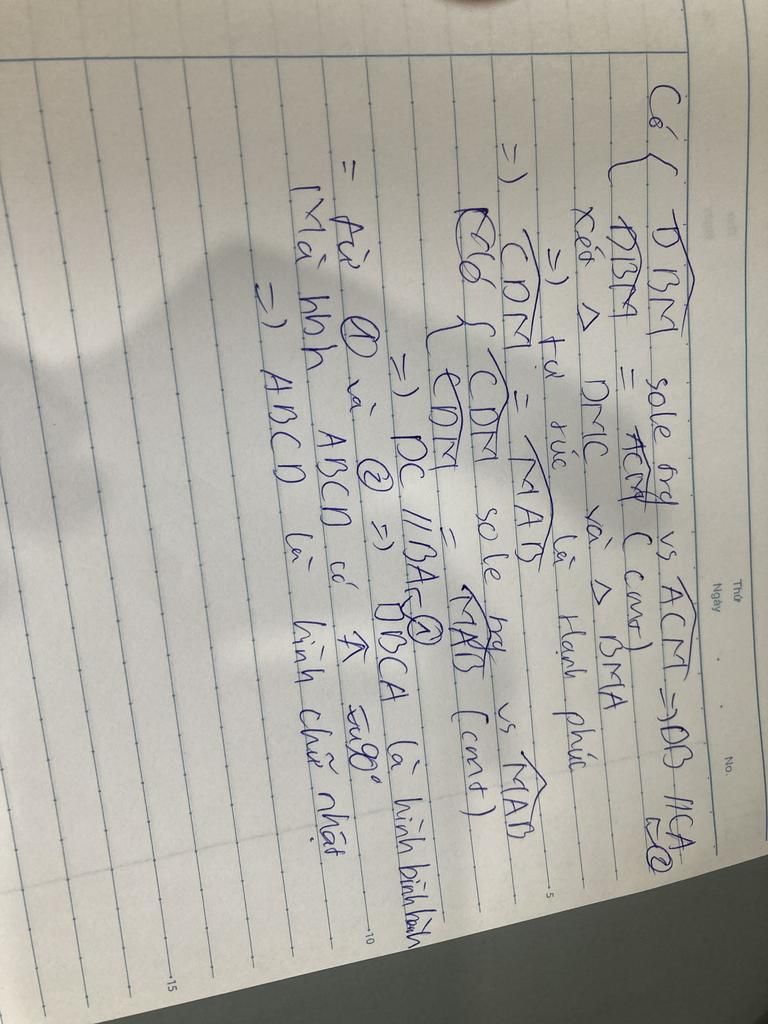 Thứ
Ngày
No.
Có { DBM sole trg vs ACM => DB // CA ②
DBM = ACM (cmt)
Xét △ DMC và △ BMA
=> tự túc là hạnh phúc
=> CDM = MAB
Mà { CDM sole trg vs MAB
CDM = MAB (cmt)
=> DC // BA ①
= từ ① và ② => DBCA là hình bình hành
Mà hbh ABCD có A = 90°
=> ABCD là hình chữ nhật
5
10
15